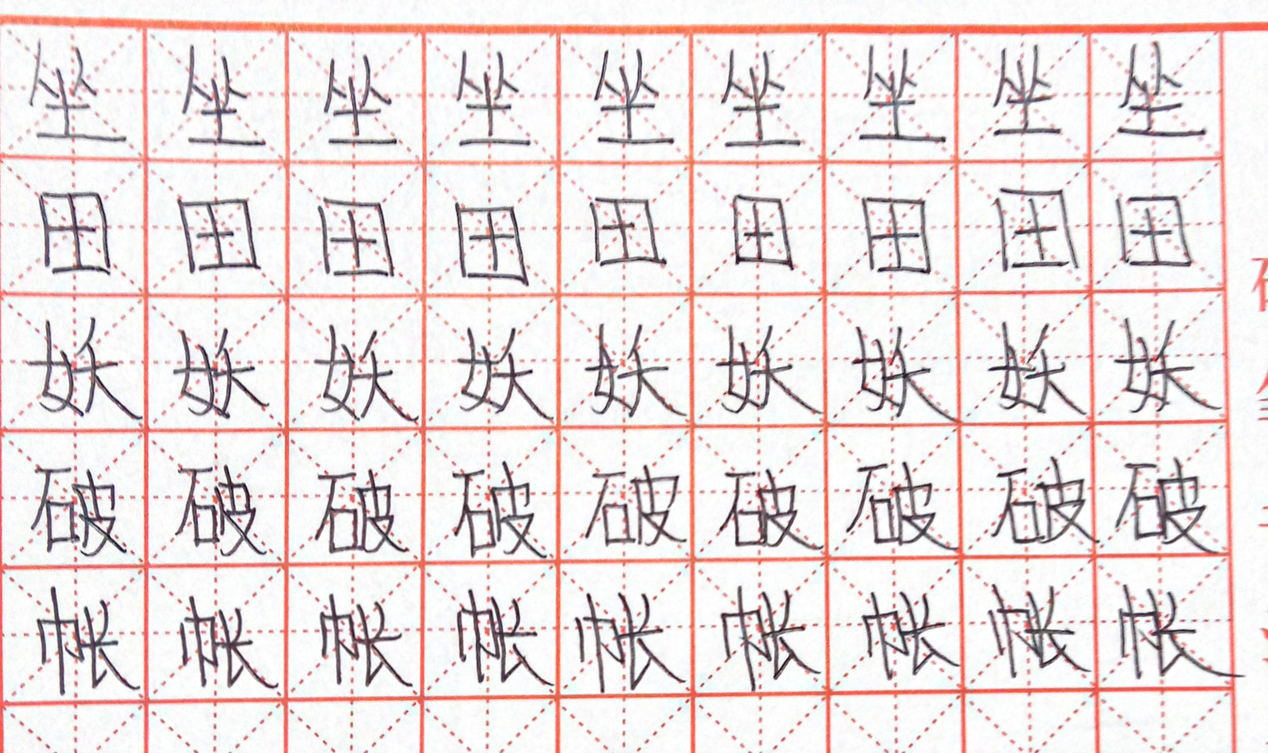 坐坐坐坐坐坐坐坐坐
田田田田田田田田田
妖妖妖妖妖妖妖妖妖
破破破破破破破破破
帐帐帐帐帐帐帐帐帐